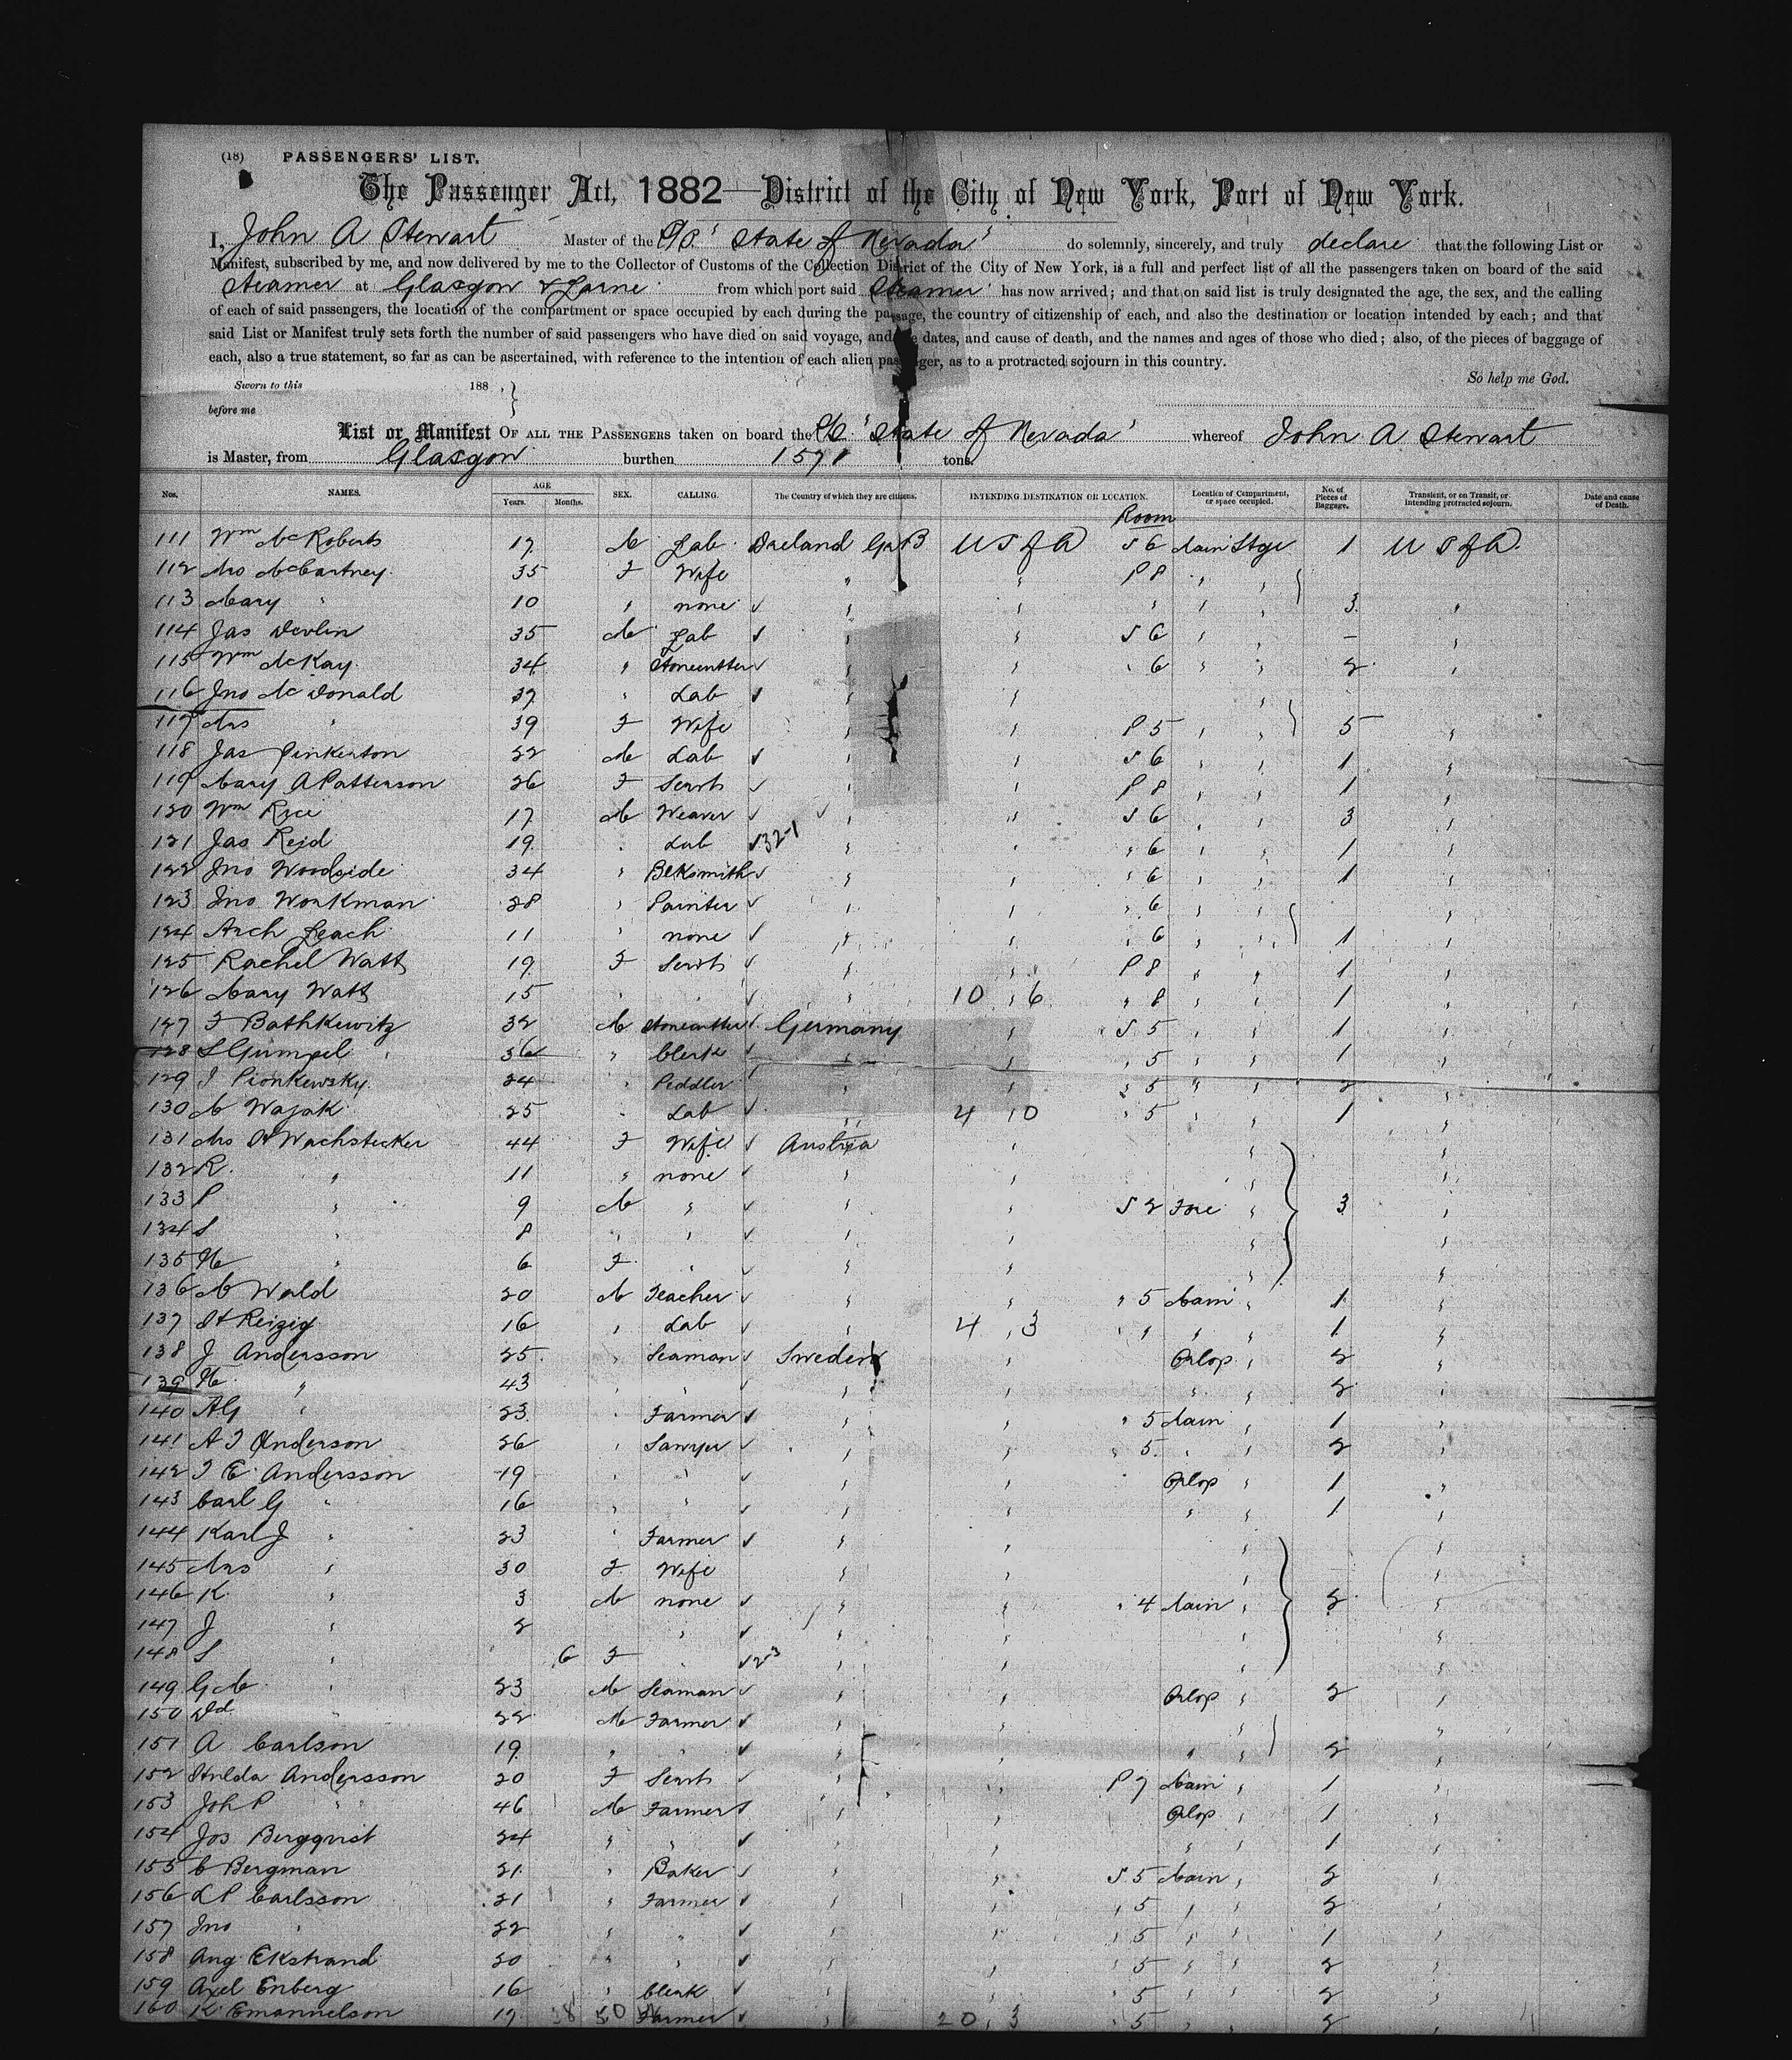 (18) PASSENGERS' LIST.
The Passenger Act, 1882—District of the City of New York, Port of New York.
I, John A Stewart Master of the S/S. "State of Nevada" do solemnly, sincerely, and truly declare that the following List or
Manifest, subscribed by me, and now delivered by me to the Collector of Customs of the Collection District of the City of New York, is a full and perfect list of all the passengers taken on board of the said
Steamer at Glasgow & Larne from which port said Steamer has now arrived; and that on said list is truly designated the age, the sex, and the calling
of each of said passengers, the location of the compartment or space occupied by each during the passage, the country of citizenship of each, and also the destination or location intended by each; and that
said List or Manifest truly sets forth the number of said passengers who have died on said voyage, and the dates, and cause of death, and the names and ages of those who died; also, of the pieces of baggage of
each, also a true statement, so far as can be ascertained, with reference to the intention of each alien passenger, as to a protracted sojourn in this country.
So help me God.
Sworn to this 188 ,
before me
List or Manifest OF ALL THE PASSENGERS taken on board the S/S "State of Nevada" whereof John A Stewart
is Master, from Glasgow burthen 1571 tons.
Nos. NAMES. AGE Years. Months. SEX. CALLING. The Country of which they are citizens. INTENDING DESTINATION OR LOCATION. Location of Compartment, or space occupied. No. of Pieces of Baggage. Transient, or on Transit, or intending protracted sojourn. Date and cause of Death.
Room
111 Wm McRoberts 17 M Lab Ireland Gt B U S of A S 6 Main Stge 1 U S of A.
112 Mrs McCartney 35 F Wife " " P 8 " "
113 Mary " 10 " none " " " " " 3 "
114 Jas Devlin 35 M Lab " " S 6 " " – "
115 Wm McKay 34 " Stonecutter " " " 6 " " 2 "
116 Jno McDonald 37 " Lab " "
117 Mrs " 39 F Wife " " P 5 " " 5 "
118 Jas Pinkerton 22 M Lab " " S 6 " " 1 "
119 Mary A Patterson 26 F Servt " " P 8 " " 1 "
120 Wm Rice 17 M Weaver " " S 6 " " 3 "
121 Jas Reid 19 " Lab 32-1 " " " 6 " " 1 "
122 Jno Woodside 34 " Blksmith " " " 6 " " 1 "
123 Jno Workman 28 " Painter " " " 6 " " "
124 Arch Leach 11 " none " " " 6 " " 1 "
125 Rachel Watt 19 F Servt " " P 8 " " 1 "
126 Mary Watt 15 " " " 10 " 6 " 8 " " 1 "
127 F Bathkewitz 32 M Stonecutter Germany " S 5 " " 1 "
128 S Gumpel 36 " Clerk " " " 5 " " 1 "
129 I Pionkewsky 24 " Peddler " " " 5 " " 2 "
130 M Wajak 25 " Lab " 4 " 0 " 5 " " 1 "
131 Mrs H Wachstecker 44 F Wife Austria " " "
132 R. " 11 " none " " " "
133 P " 9 M " " " S 2 Fore " 3 "
134 S " 8 " " " " " "
135 N " 6 F " " " " "
136 M Wald 20 M Teacher " " " 5 Main " 1 "
137 H Reizig 16 " Lab " 4 " 3 " " " " 1 "
138 J Andersson 25 " Seaman Sweden " Orlop " 2 "
139 N " 43 " " " " " " 2 "
140 AG " 23 " Farmer " " " 5 Main " 1 "
141 A F Anderson 26 " Sawyer " " " 5 " " 2 "
142 F E Andersson 19 " " " " Orlop " 1 "
143 Carl G " 16 " " " " " " 1 "
144 Karl J " 23 " Farmer " " " "
145 Mrs " 30 F Wife " " " "
146 K " 3 M none " " " 4 Main " 2 "
147 J " 2 " " " " "
148 S " 6 F " " " " "
149 G M " 23 M Seaman " " Orlop " 2 "
150 Dd " 22 M Farmer " " " "
151 A Carlson 19 " " " " " " 2 "
152 Hulda Andersson 20 F Servt " " P 7 Main " 1 "
153 Joh P " 46 M Farmer " " Orlop " 1 "
154 Jos Bergqvist 24 " " " " " " 1 "
155 C Bergman 21 " Baker " " S 5 Main " 2 "
156 L P Carlsson 21 " Farmer " " " 5 " " 2 "
157 Jno " 22 " " " " " 5 " " 1 "
158 Aug Ekstrand 20 " " " " " 5 " " 2 "
159 Axel Enberg 16 " Clerk " " " 5 " " 2 "
160 K Emanuelson 17 " Farmer " 20 " 3 " 5 " " 2 "